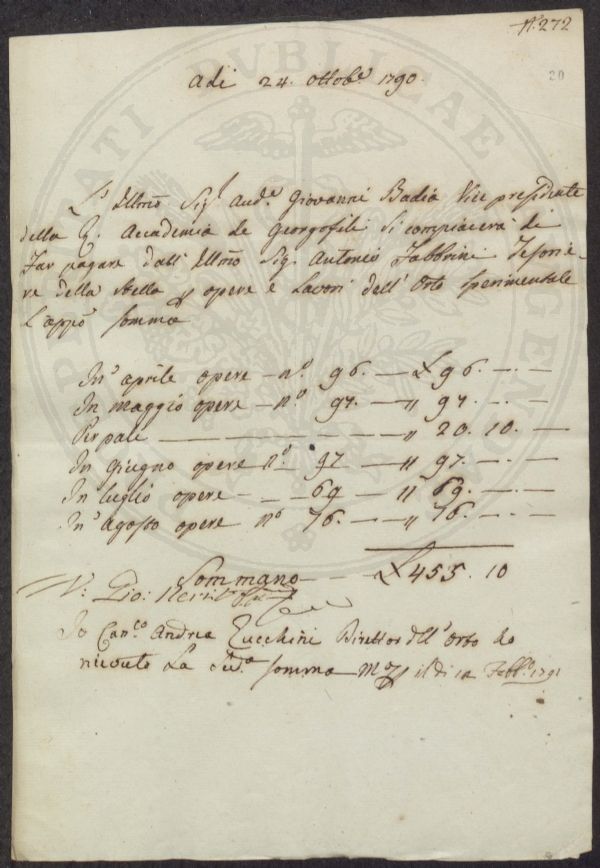 N.° 272
20
Adi 24. Ottob.e 1790.
L'Illmo Sig.r Aud.e Giovanni Badia Vice presidente
della R. Accademia de Georgofili si compiacerà di
Far pagare dall' Illmo Sig. Antonio Fabbrini Tesorie-
re della stessa opere e Lavori dell' Orto sperimentale
L'app.a somma
In aprile opere - n.° 96. — £ 96. — . —
In maggio opere - n.° 97. — " 97. — . —
Per pale — " 20. 10. —
In giugno opere n.° 97 — " 97. — . —
In luglio opere — 69 — " 69. — . —
In Agosto opere n.° 76. — " 76. — . —
Sommano — £ 455. 10
V: Gio: Neri
Io Can.co Andrea Zucchini Direttor dell' Orto ho
ricevuto La Sud.a somma il di 12 Febb.o 1791
PROSPERITATI PUBLICAE AUGENDAE